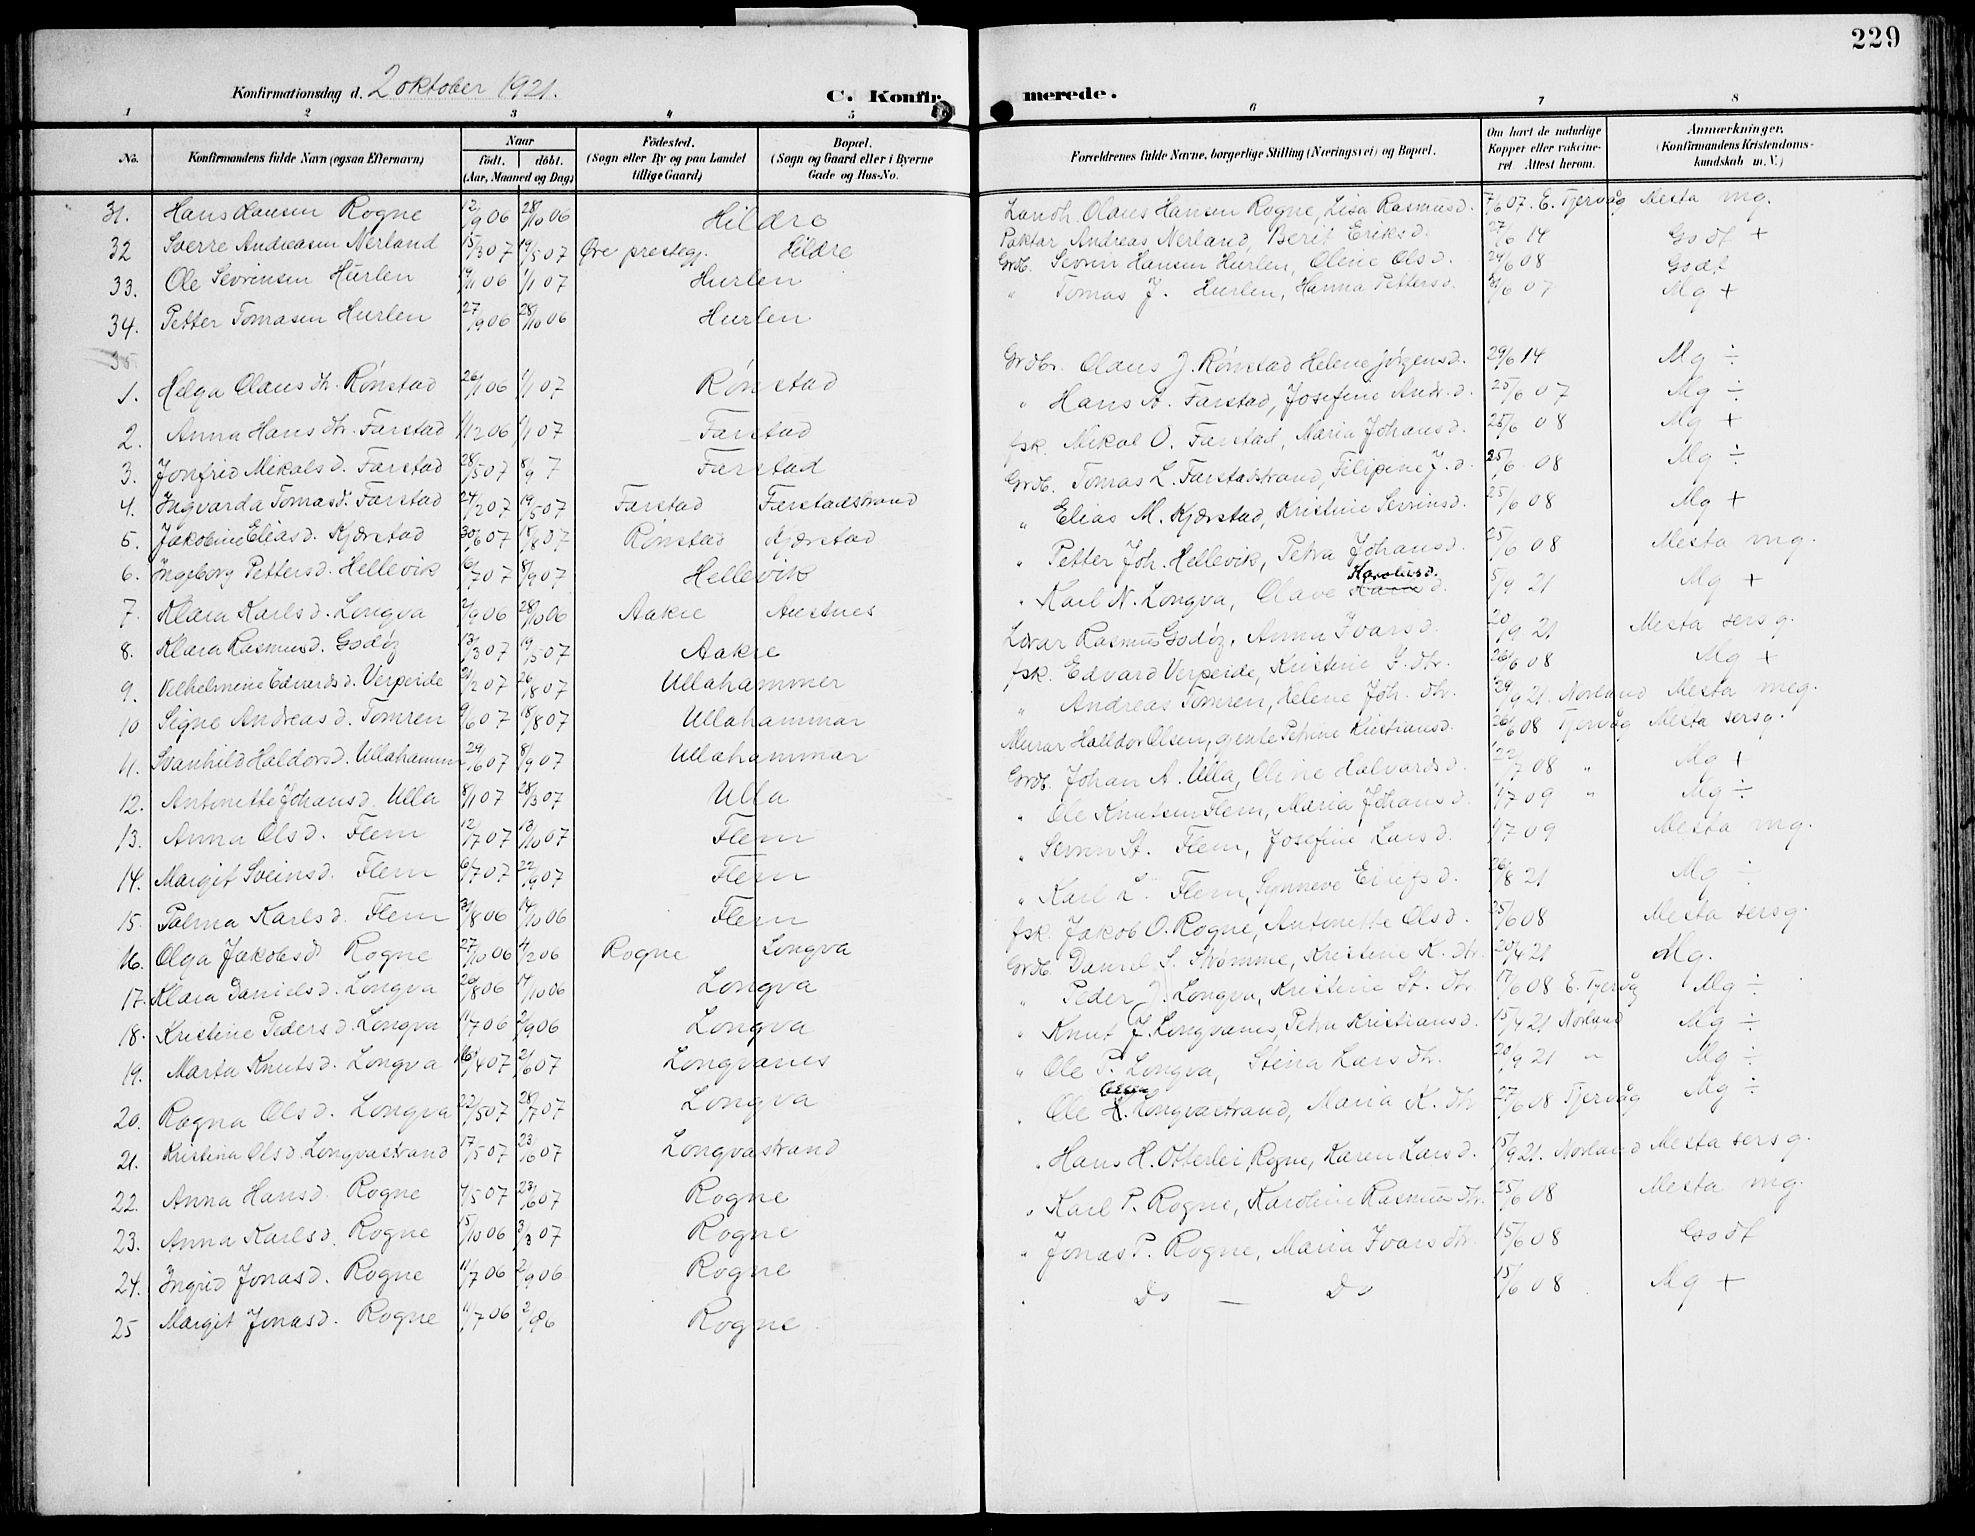 229
Konfirmationsdag d. 2 oktober 1921. C. Konfirmerede.
1 2 3 4 5 6 7 8
No. Konfirmandens fulde Navn (ogsaa Efternavn) Naar født. døbt. (Aar, Maaned og Dag) Fødested. (Sogn eller By og paa Landet tillige Gaard) Bopæl. (Sogn og Gaard eller i Byerne Gade og Hus-No. Forældrenes fulde Navne, borgerlige Stilling (Næringsvei) og Bopæl. Om havt de naturlige Kopper eller vakcineret Attest herom. Anmærkninger. (Konfirmandens Kristendomskundskab m. V.)
31. Hans Hansen Rogne 12/9 06 28/10 06 Hildre Landh. Olaus Hansen Rogne, Lisa Rasmusd. 7/6 07. E. Tjervåg Mesta mg.
32 Sverre Andreasen Nerland 15/3 07 19/5 07 Øre prestegj. Hildre Paktar Andreas Nerland, Berit Eriksd. 27/6 14 Godt +
33. Ole Sevrinsen Hurlen 19/11 06 1/1 07 Hurlen Grdb. Sevrin Hansen Hurlen, Oline Olsd. 24/6 08 Godt
34. Petter Tomasen Hurlen 27/9 06 28/10 06 Hurlen " Tomas J. Hurlen, Hanna Pettersd. 6 07 Mg +
35
1. Helga Olausdtr. Rønstad 26/11 06 1/1 07 Rønstad Grdbr. Olaus J. Rønstad Helene Jørgensd. 29/6 14 Mg ÷
2. Anna Hansdtr. Farstad 1/12 06 1/1 07 Farstad " Hans A. Farstad, Josefine Andr.d. 25/6 07 Mg ÷
3. Jonfrid Mikalsd. Farstad 28/5 07 8/9 7 Farstad fsk. Mikal O. Farstad, Maria Johansd. 25/6 08 Mg +
4. Ingvarda Tomasd. Farstad 24/2 07 19/5 07 Farstad Farstadstrand Grdb. Tomas L. Farstadstrand, Filipine J.d. 25/6 08 Mg ÷
5. Jakobine Eliasd. Kjærstad 30/6 07 18/8 07 Rønstad Kjærstad " Elias M. Kjærstad, Kristine Sevrinsd. 25/6 08 Mg +
6. Ingeborg Pettersd. Hellevik 16/7 07 8/9 07 Hellevik " Petter Joh. Hellevik, Petra Johansd. 25/6 08 Mesta mg.
7. Klara Karlsd. Longva 2/9 06 28/10 06 Aakre Austnes " Karl N. Longva, Olave Karolusd. 5/9 21 Mg +
8. Klara Rasmusd. Godøy 13/3 07 19/5 07 Aakre Lærar Rasmus Godøy, Anna Ivarsd. 20/9 21 Mesta sers g.
9. Vilhelmine Edvardsd. Verpeide 21/2 07 26/8 07 Ullahammer fsk. Edvard Verpeide, Kristine S. dtr. 26/6 08 Mg +
10 Signe Andreasd. Tomren 9/6 07 18/8 07 Ullahammar " Andreas Tomren, Helene Joh. dtr. 29/9 21. Norland Mesta meg.
11. Svanhild Haldorsd. Ullahammer 29/6 07 8/9 07 Ullahammar Murar Halldor Olsen, gjente Petrine Kristiansd. 26/6 08 Tjervåg Mesta sers g.
12. Antonette Johansd. Ulla 8/1 07 28/3 07 Ulla Grdb. Johan A. Ulla, Oline Halvardsd. 22/7 08 " Mg +
13. Anna Olsd. Flem 12/7 07 13/10 07 Flem " Ole Knutsen Flem, Maria Johansd. 1/7 09 " Mg ÷
14. Margit Sveinsd. Flem 6/7 07 22/9 07 Flem " Sevrin St. Flem, Josefine Larsd. 1/7 09 Mesta mg.
15. Palma Karlsd. Flem 31/8 06 14/10 06 Flem " Karl L. Flem, Synneve Eilifsd. 26/8 21 Mg ÷
16. Olga Jakobsd. Rogne 27/10 06 4/2 06 Rogne Longva fsk. Jakob O. Rogne, Antonette Olsd. 25/6 08 Mesta sers g.
17. Klara Danielsd. Longva 26/8 06 14/10 06 Longva Grdb. Daniel S. Strømme, Kristine K. dtr. 20/4 21 Mg.
18. Kristine Pedersd. Longva 11/7 06 2/9 06 Longva " Peder J. Longva, Kristine St. dtr 17/6 08 E. Tjervåg Mg ÷
19. Marta Knutsd. Longva 16/4 07 2/6 07 Longvanes " Knut J. Longvanes, Petra Kristiansd. 15/4 21 Norland Mg ÷
20. Ragna Olsd. Longva 22/5 07 28/7 07 Longva " Ole P. Longva, Stina Larsdtr. 20/9 21 " Mg ÷
21. Kristina Olsd. Longvastrand 17/5 07 23/6 07 Longvastrand " Ole Longvastrand, Maria K. dtr 27/6 08 Tjervåg Mg ÷
22. Anna Hansd. Rogne 1/5 07 23/6 07 Rogne " Hans H. Otterlei, Rogne, Karen Larsd. 15/9 21. Norland Mesta sers g.
23. Anna Karlsd. Rogne 15/10 06 3/3 07 Rogne " Karl P. Rogne, Karoline Rasmus dtr. 25/6 08 Mesta mg.
24. Ingrid Jonasd. Rogne 11/7 06 2/9 06 Rogne " Jonas P. Rogne, Maria Ivars dtr. 15/6 08 Godt
25 Margit Jonasd. Rogne 11/7 06 2/9 06 Rogne " Do — Do 15/6 08 Mg +